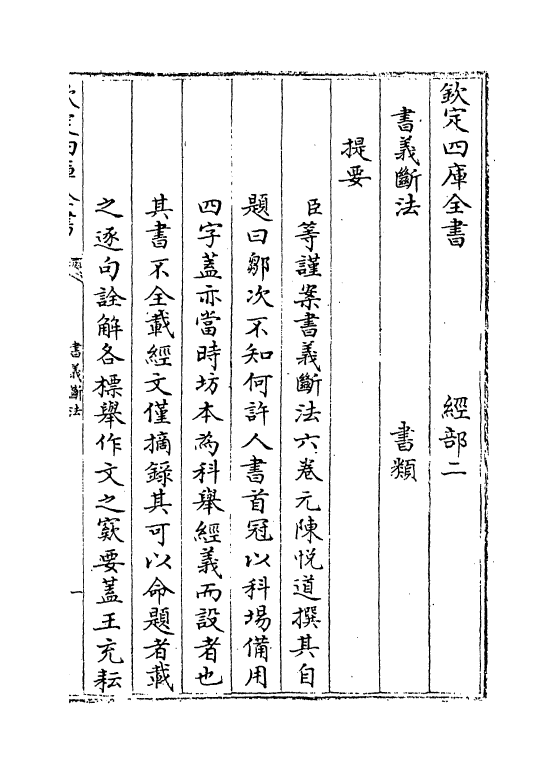 欽定四庫全書　經部二
書義斷法　書類
提要
臣等謹案書義斷法六卷元陳悦道撰其自
題曰鄒次不知何許人書首冠以科場備用
四字蓋亦當時坊本為科舉經義而設者也
其書不全載經文僅摘錄其可以命題者載
之逐句詮解各標舉作文之窾要蓋王充耘
欽定四庫全書　書義斷法　一